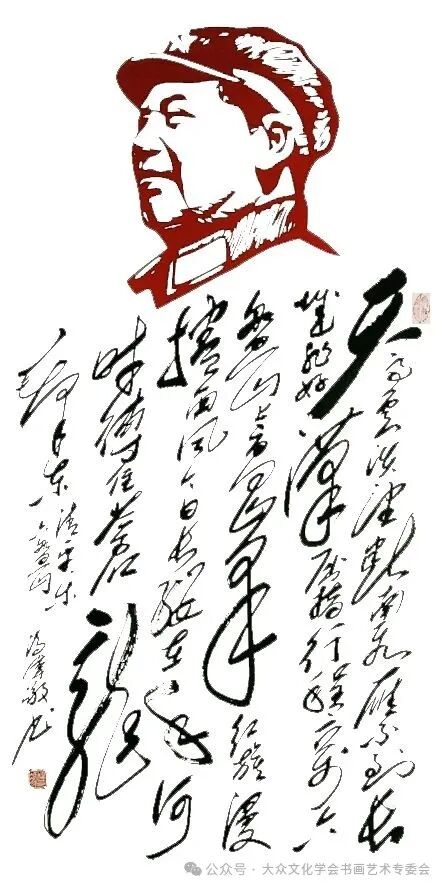 天高雲淡望断南飛雁不到長
城非好漢屈指行程二万六
盘山上高峰红旗漫
捲西风今日长缨在手何
时缚住苍龙
毛泽东清平乐
六盘山
书
公众号 · 大众文化学会书画艺术专委会